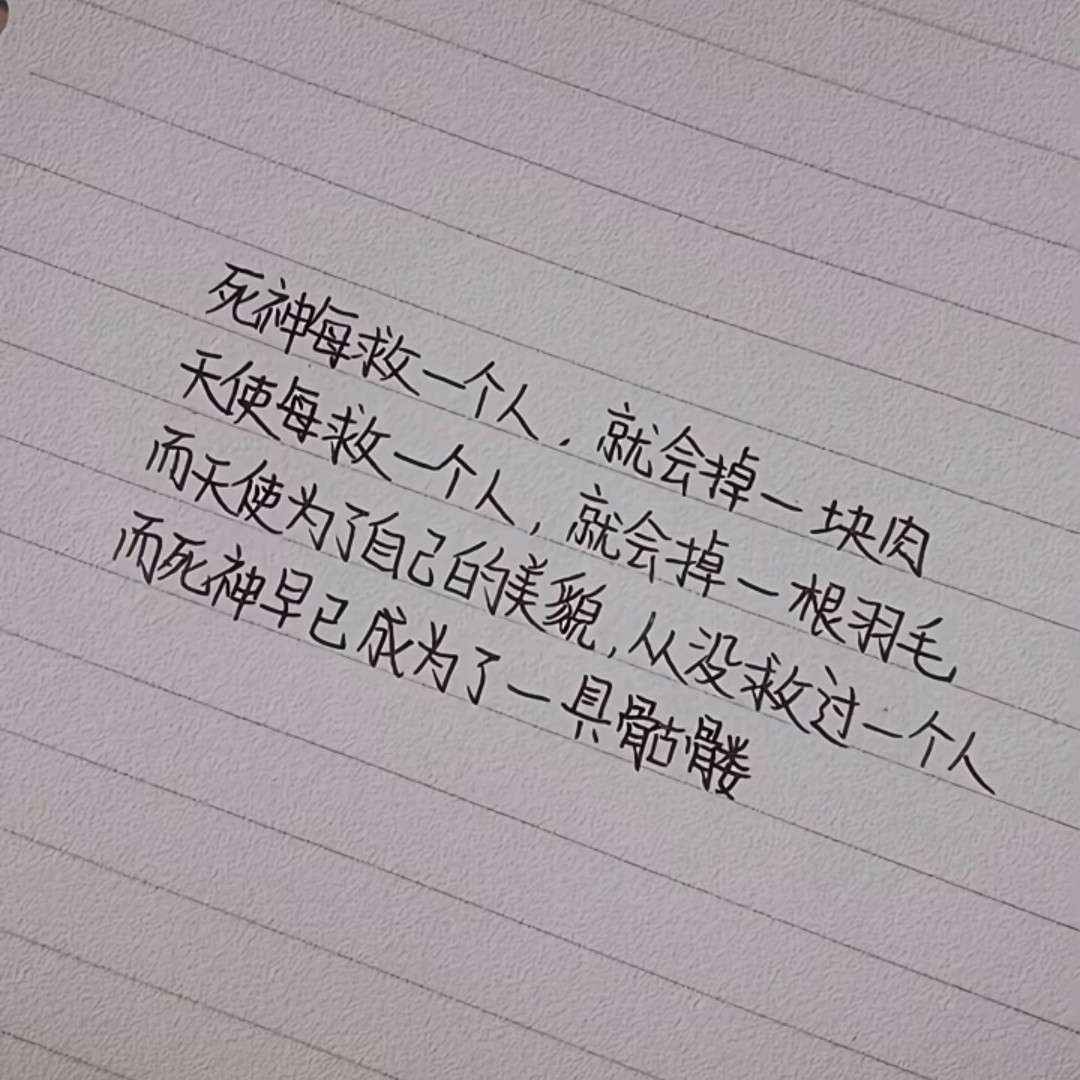 死神每救一个人，就会掉一块肉
天使每救一个人，就会掉一根羽毛
而天使为了自己的美貌,从没救过一个人
而死神早已成为了一具骷髅